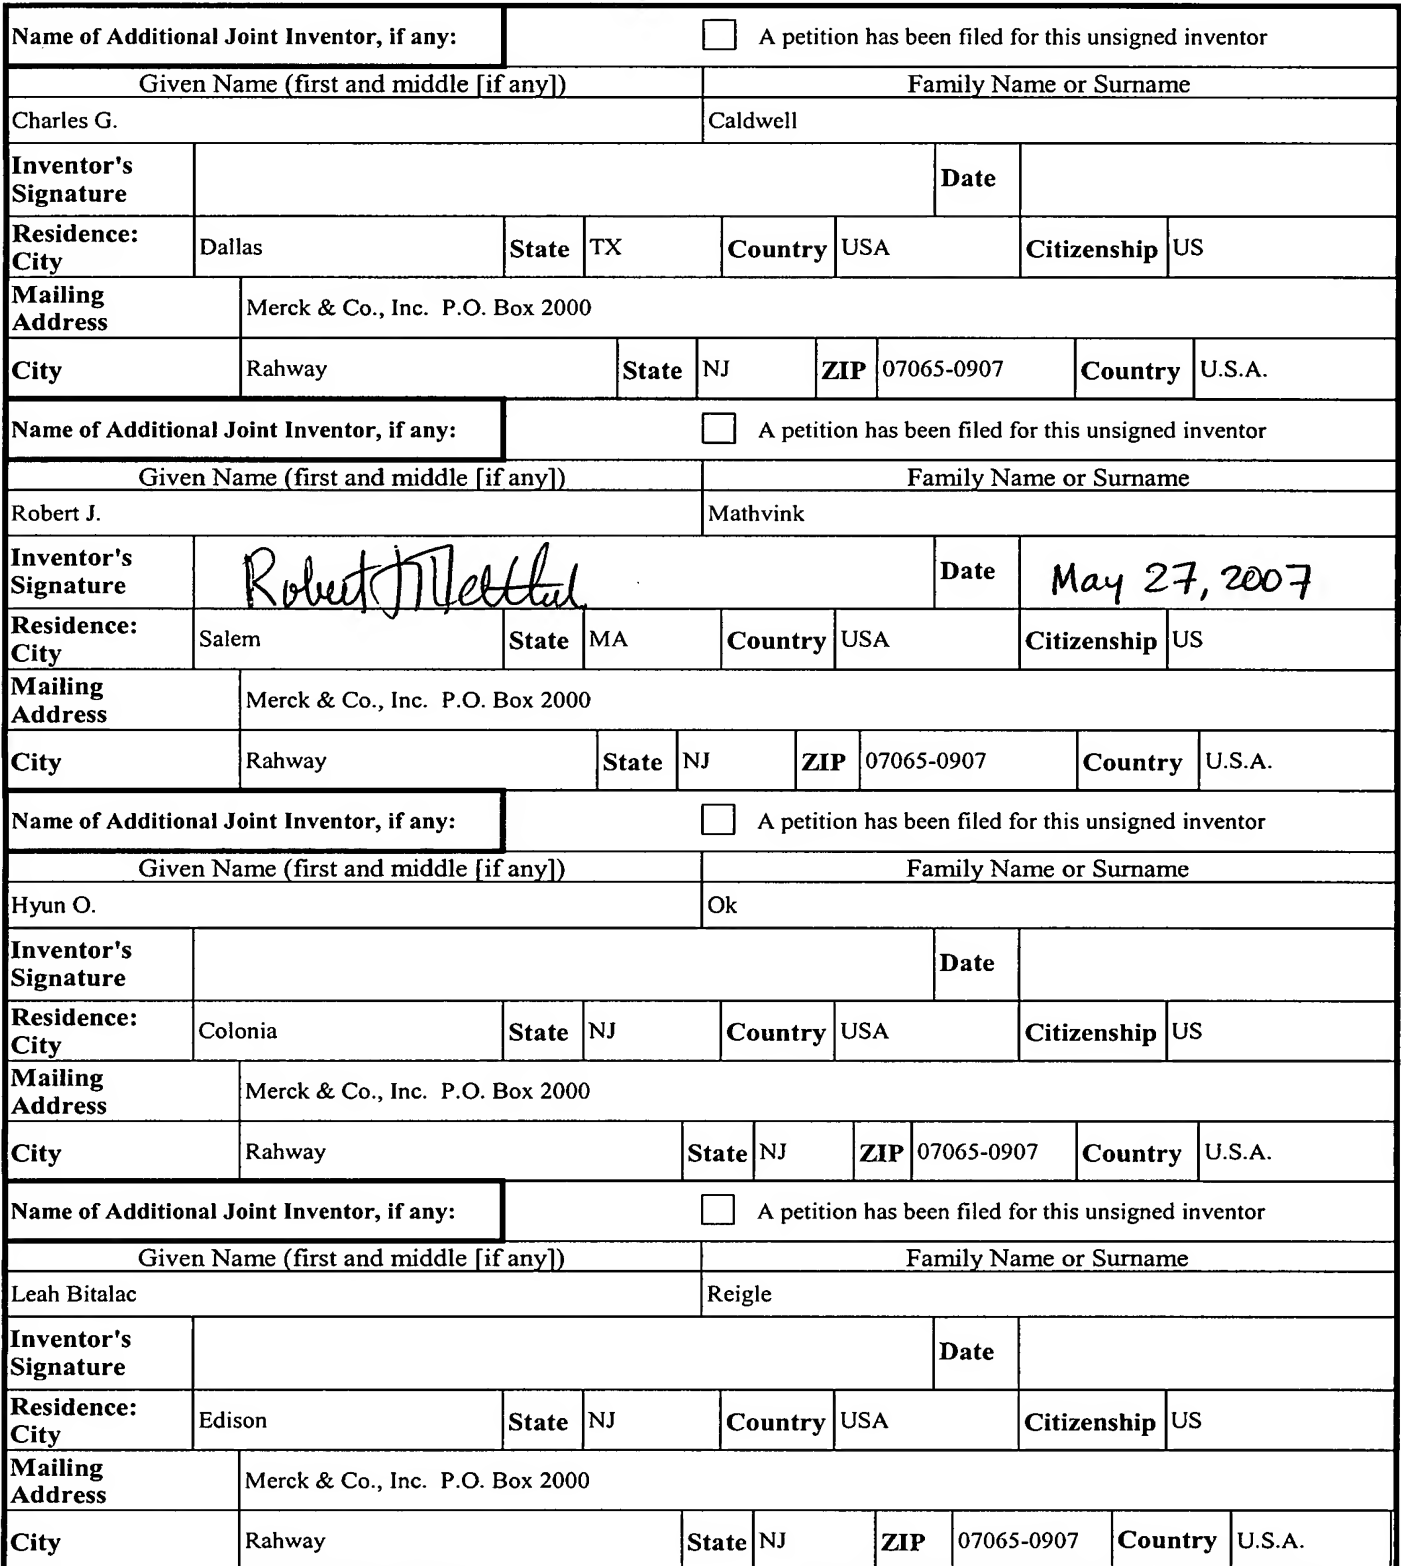 Name of Additional Joint Inventor, if any: A petition has been filed for this unsigned inventor
Given Name (first and middle [if any]) Family Name or Surname
Charles G. Caldwell
Inventor's Signature Date
Residence: City Dallas State TX Country USA Citizenship US
Mailing Address Merck & Co., Inc. P.O. Box 2000
City Rahway State NJ ZIP 07065-0907 Country U.S.A.
Name of Additional Joint Inventor, if any: A petition has been filed for this unsigned inventor
Given Name (first and middle [if any]) Family Name or Surname
Robert J. Mathvink
Inventor's Signature Robert J Date May 27, 2007
Residence: City Salem State MA Country USA Citizenship US
Mailing Address Merck & Co., Inc. P.O. Box 2000
City Rahway State NJ ZIP 07065-0907 Country U.S.A.
Name of Additional Joint Inventor, if any: A petition has been filed for this unsigned inventor
Given Name (first and middle [if any]) Family Name or Surname
Hyun O. Ok
Inventor's Signature Date
Residence: City Colonia State NJ Country USA Citizenship US
Mailing Address Merck & Co., Inc. P.O. Box 2000
City Rahway State NJ ZIP 07065-0907 Country U.S.A.
Name of Additional Joint Inventor, if any: A petition has been filed for this unsigned inventor
Given Name (first and middle [if any]) Family Name or Surname
Leah Bitalac Reigle
Inventor's Signature Date
Residence: City Edison State NJ Country USA Citizenship US
Mailing Address Merck & Co., Inc. P.O. Box 2000
City Rahway State NJ ZIP 07065-0907 Country U.S.A.